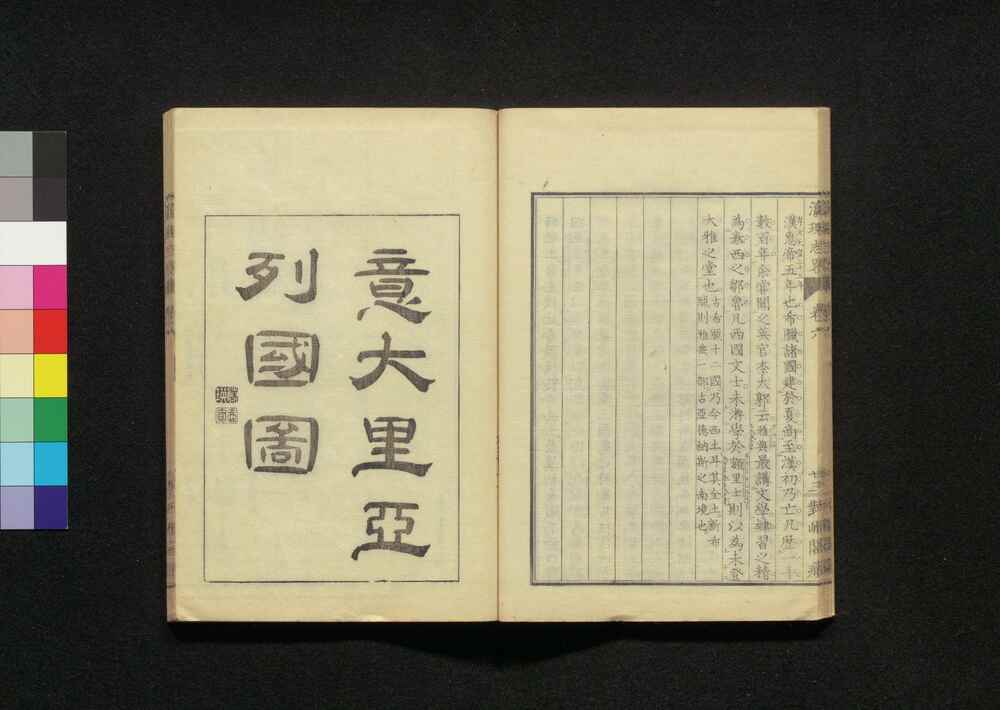 瀛環志畧 卷六 廿三 對嵋閣藏
漢惠帝五年也希臘諸國建於夏商至漢初乃亡凡歷一千
數百年余嘗聞之英官李太郭云雅典最講文學肄習之精
為泰西之鄒魯凡西國文士未游學於額里士則以為未登
大雅之堂也
古希臘十二國乃今西土耳其全土新希
臘則雅典一部古亞德納斯之南境也
意大里亞
列國圖